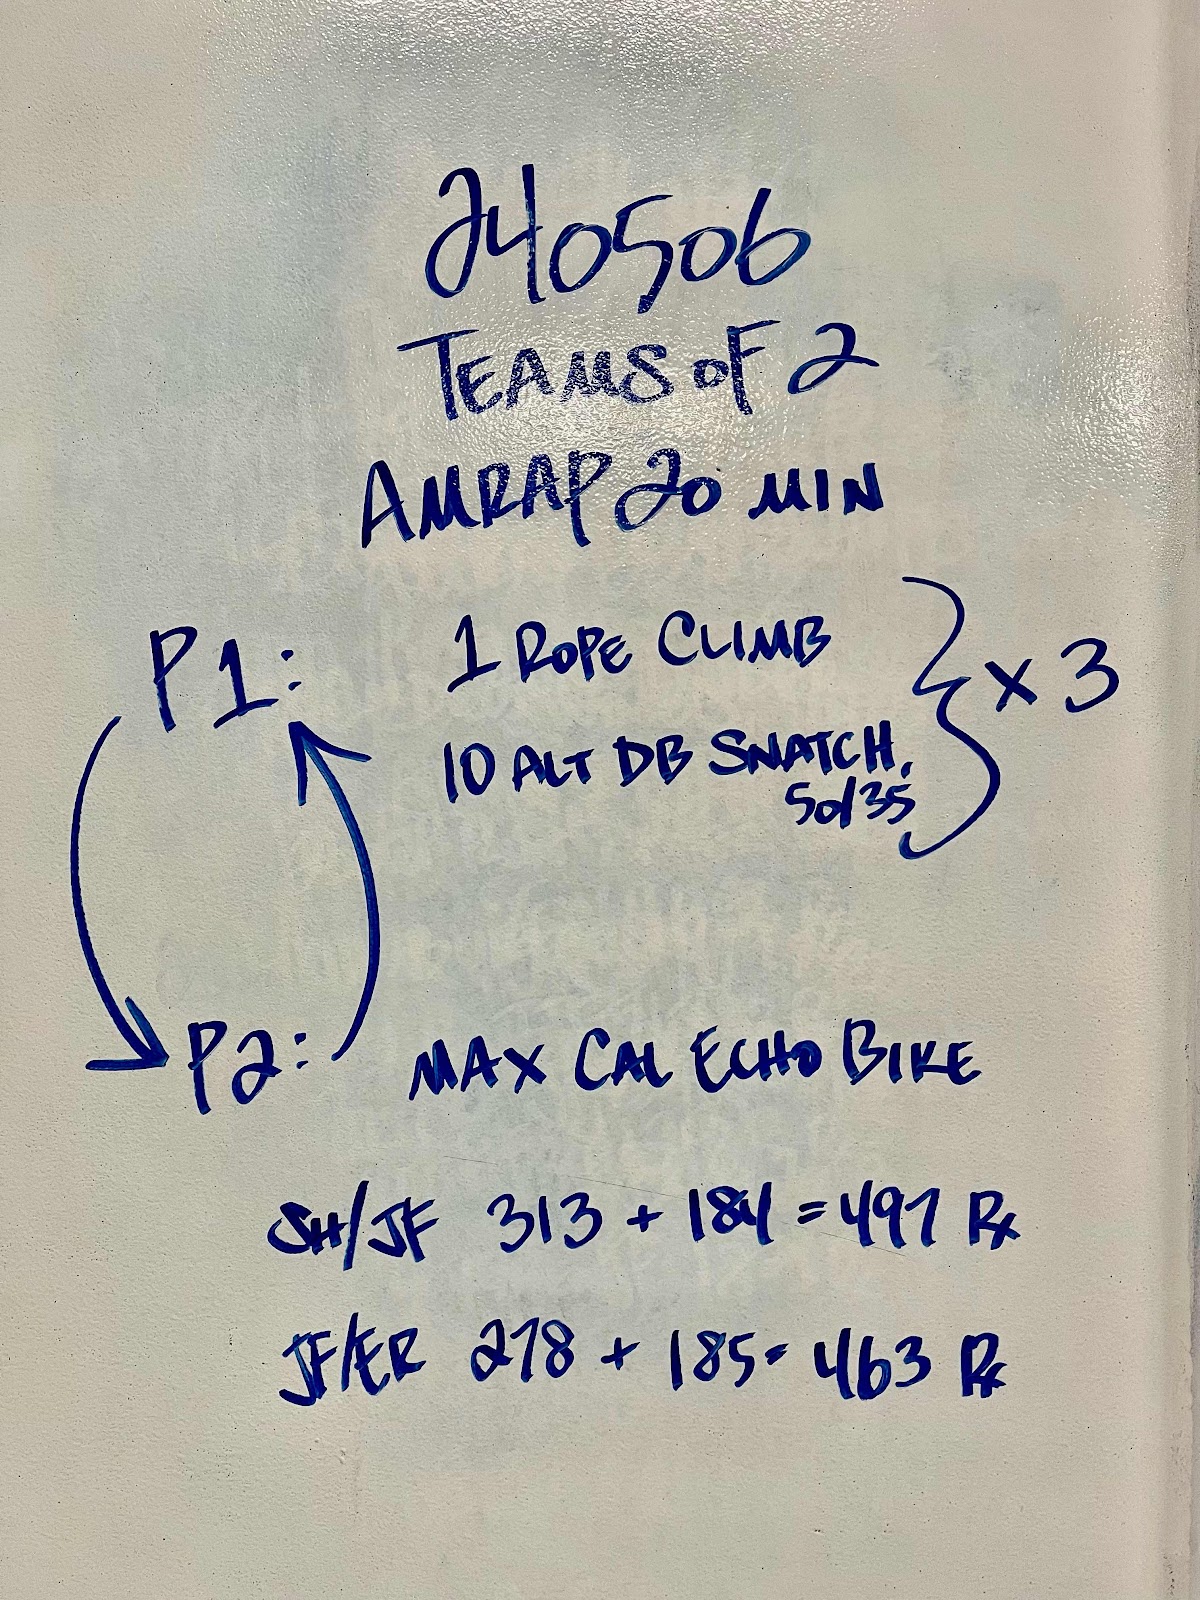 240506
TEAMS OF 2
AMRAP 20 MIN
P1: 1 ROPE CLIMB
10 ALT DB SNATCH. } x 3
50/35
P2: MAX CAL ECHO BIKE
SH/JF 313 + 184 = 497 Rx
JF/ER 278 + 185 = 463 Rx